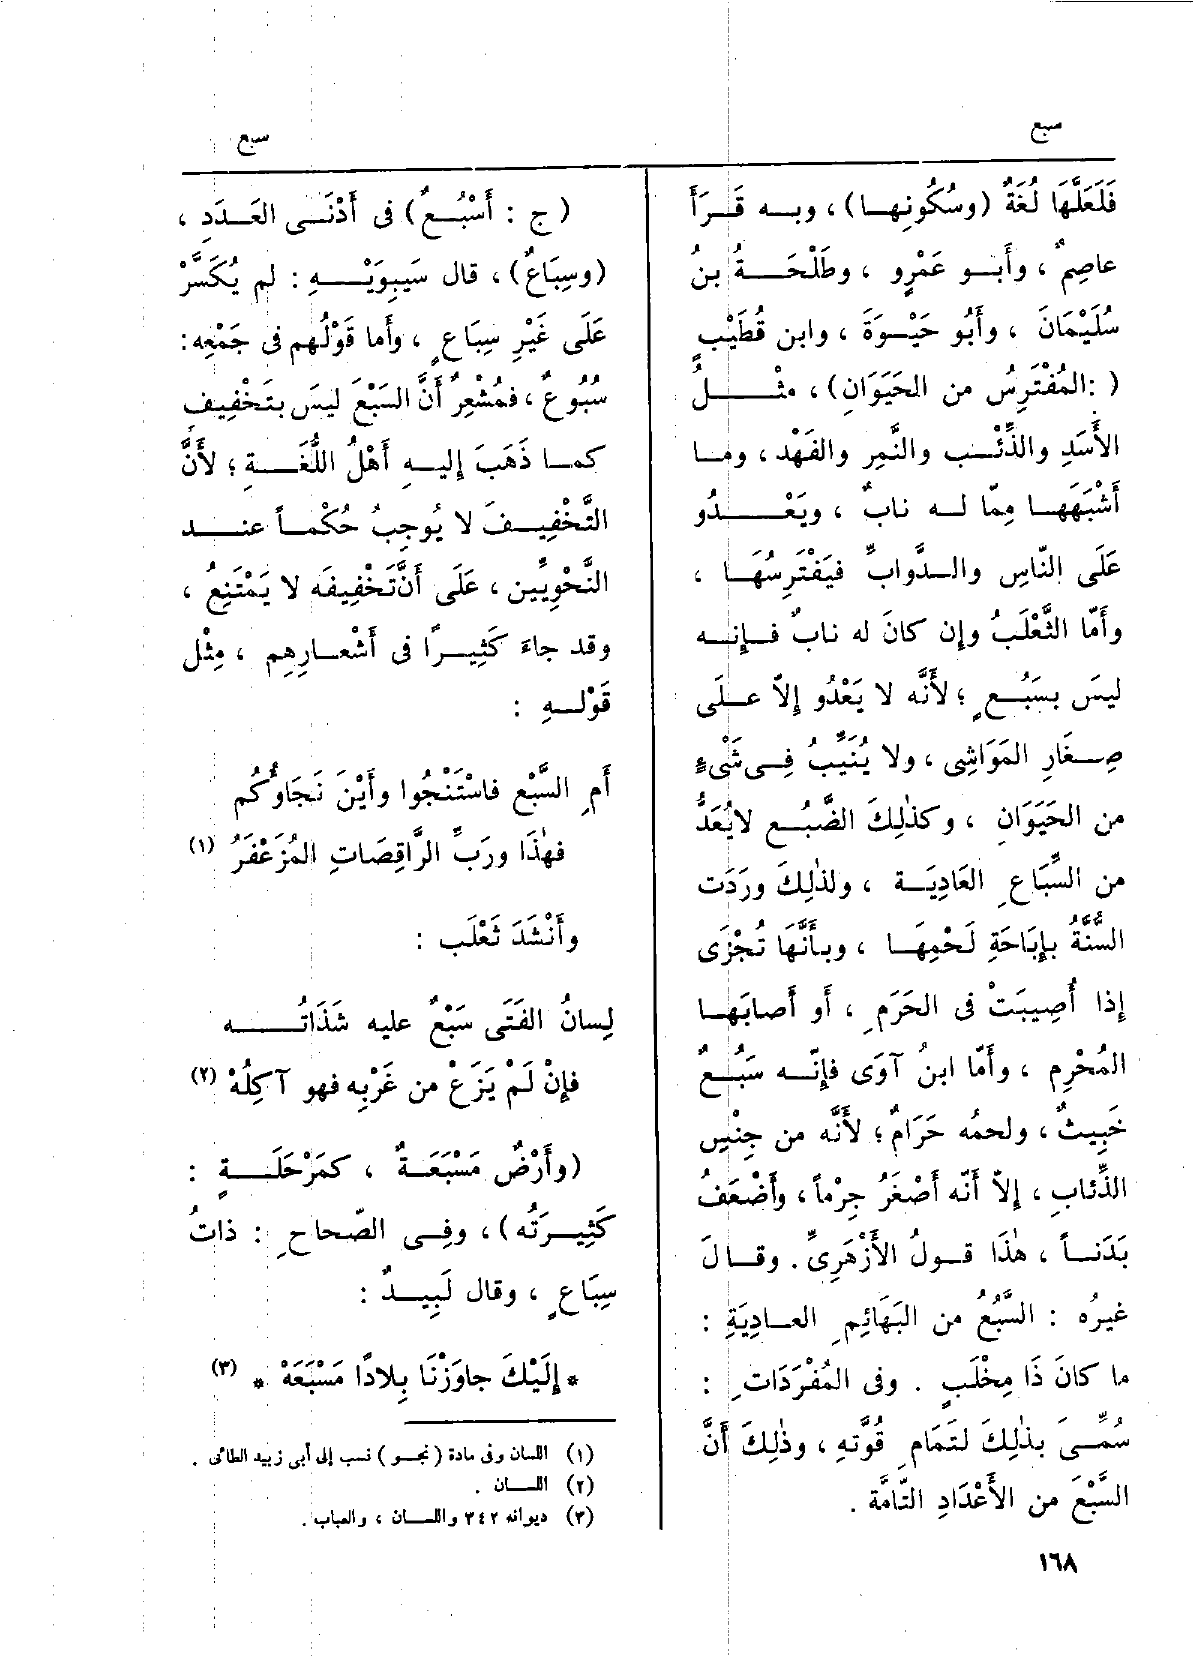 سبع
سبع
فَلَعَلَّهَا لُغَةٌ (وسُكُونِها) ، وبه قَرَأَ
عاصِمٌ ، وأَبو عَمْرٍو ، وطَلْحَةُ بنُ
سُلَيْمَانَ ، وأَبُو حَيْوَةَ ، وابن قُطَيْبٍ
( :المُفْتَرِسُ من الحَيَوَانِ) ، مثْلُ
الأَسَدِ والذِّئْبِ والنَّمِرِ والفَهْد ، وما
أَشْبَهَها مِمّا له نابٌ ، ويَعْدُو
عَلَى النّاسِ والدَّوابِّ فيَفْتَرِسُهَا ،
وأَمّا الثَّعْلَبُ وإن كانَ له نابٌ فإِنه
ليسَ بسَبُعٍ ؛ لأَنَّه لا يَعْدُو إِلاّ علَى
صِغَارِ المَوَاشِى ، ولا يُنَيِّبُ فِى شَىْءٍ
من الحَيَوَانِ ، وكذٰلِكَ الضَّبُع لايُعَدُّ
من السِّبَاعِ العَادِيَة ، ولذٰلِكَ ورَدَت
السُّنَّةُ بإِبَاحَةِ لَحْمِهَا ، وبأَنَّهَا تُجْزَى
إِذا أُصِيبَتْ فى الحَرَمِ ، أَو أَصابَها
المُحْرِم ، وأَمّا ابنُ آوَى فإِنّه سَبُعٌ
خَبِيثٌ ، ولحمُه حَرَامٌ ؛ لأَنَّه من جِنْسِ
الذِّئابِ ، إِلاّ أَنّه أَصْغَرُ جِرْماً ، وأَضْعَفُ
بَدَناً ، هٰذَا قولُ الأَزْهَرِىِّ . وقالَ
غيرُه : السَّبُعُ من البَهَائِمِ العادِيَةِ :
ما كانَ ذَا مِخْلَبٍ . وفى المُفْرَدَاتِ :
سُمِّىَ بذٰلِكَ لتَمَامِ قُوَّتهِ ، وذٰلِكَ أَنَّ
السَّبْعَ من الأَعْدَادِ التّامَّة .
( ج : أَسْبُعٌ) فى أَدْنَى العَدَدِ ،
(وسِبَاعٌ) ، قال سَيبِوَيْهِ : لم يُكَسَّرْ
عَلَى غَيْرِ سِبَاعٍ ، وأَما قَوْلُهم فى جَمْعِه :
سُبُوعٌ ، فمُشْعِرٌ أَنَّ السَبْعَ ليسَ بتَخْفِيفٍ
كما ذَهَبَ إِليهِ أَهْلُ اللُّغَةِ ؛ لأَنَّ
التَّخْفِيفَ لا يُوجِبُ حُكْماً عند
النَّحْوِيِّين ، عَلَى أَنَّ تَخْفِيفَه لا يَمْتَنِعُ ،
وقد جاءَ كَثِيرًا فى أَشْعارِهِم ، مِثْل
قَوْلهِ :
أَمِ السَّبْع فاسْتَنْجُوا وأَيْنَ نَجَاؤُكُم
فهٰذَا ورَبِّ الرَّاقِصَاتِ المُزَعْفَرُ (١)
وأَنْشَدَ ثَعْلَب :
لِسانُ الفَتَى سَبْعٌ عليه شَذَاتُه
فإِنْ لَمْ يَزَعْ من غَرْبِه فهو آكِلُهْ (٢)
(وأَرْضٌ مَسْبَعَةٌ ، كمَرْحَلَةٍ :
كَثِيرَتُه) ، وفِى الصّحاحِ : ذاتُ
سِبَاعٍ ، وقال لَبِيدٌ :
* إِلَيْكَ جاوَزْنَا بِلادًا مَسْبَعَهْ * (٣)
(١) اللسان وفى مادة (نجو) نسب إلى أبى زبيد الطائى .
(٢) اللسان .
(٣) ديوانه ٣٤٢ واللسان ، والعباب .
١٦٨